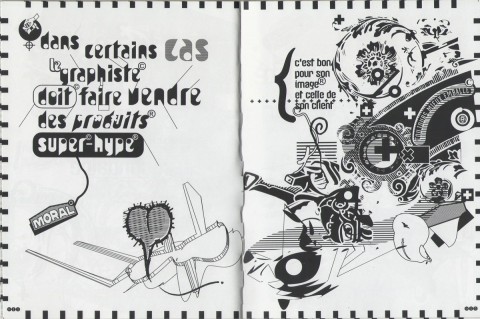 dans certains cas
le graphiste©
doit faire vendre
des produits®
super©-hype®
MORAL
c'est bon
pour son
image®
et celle de
son client